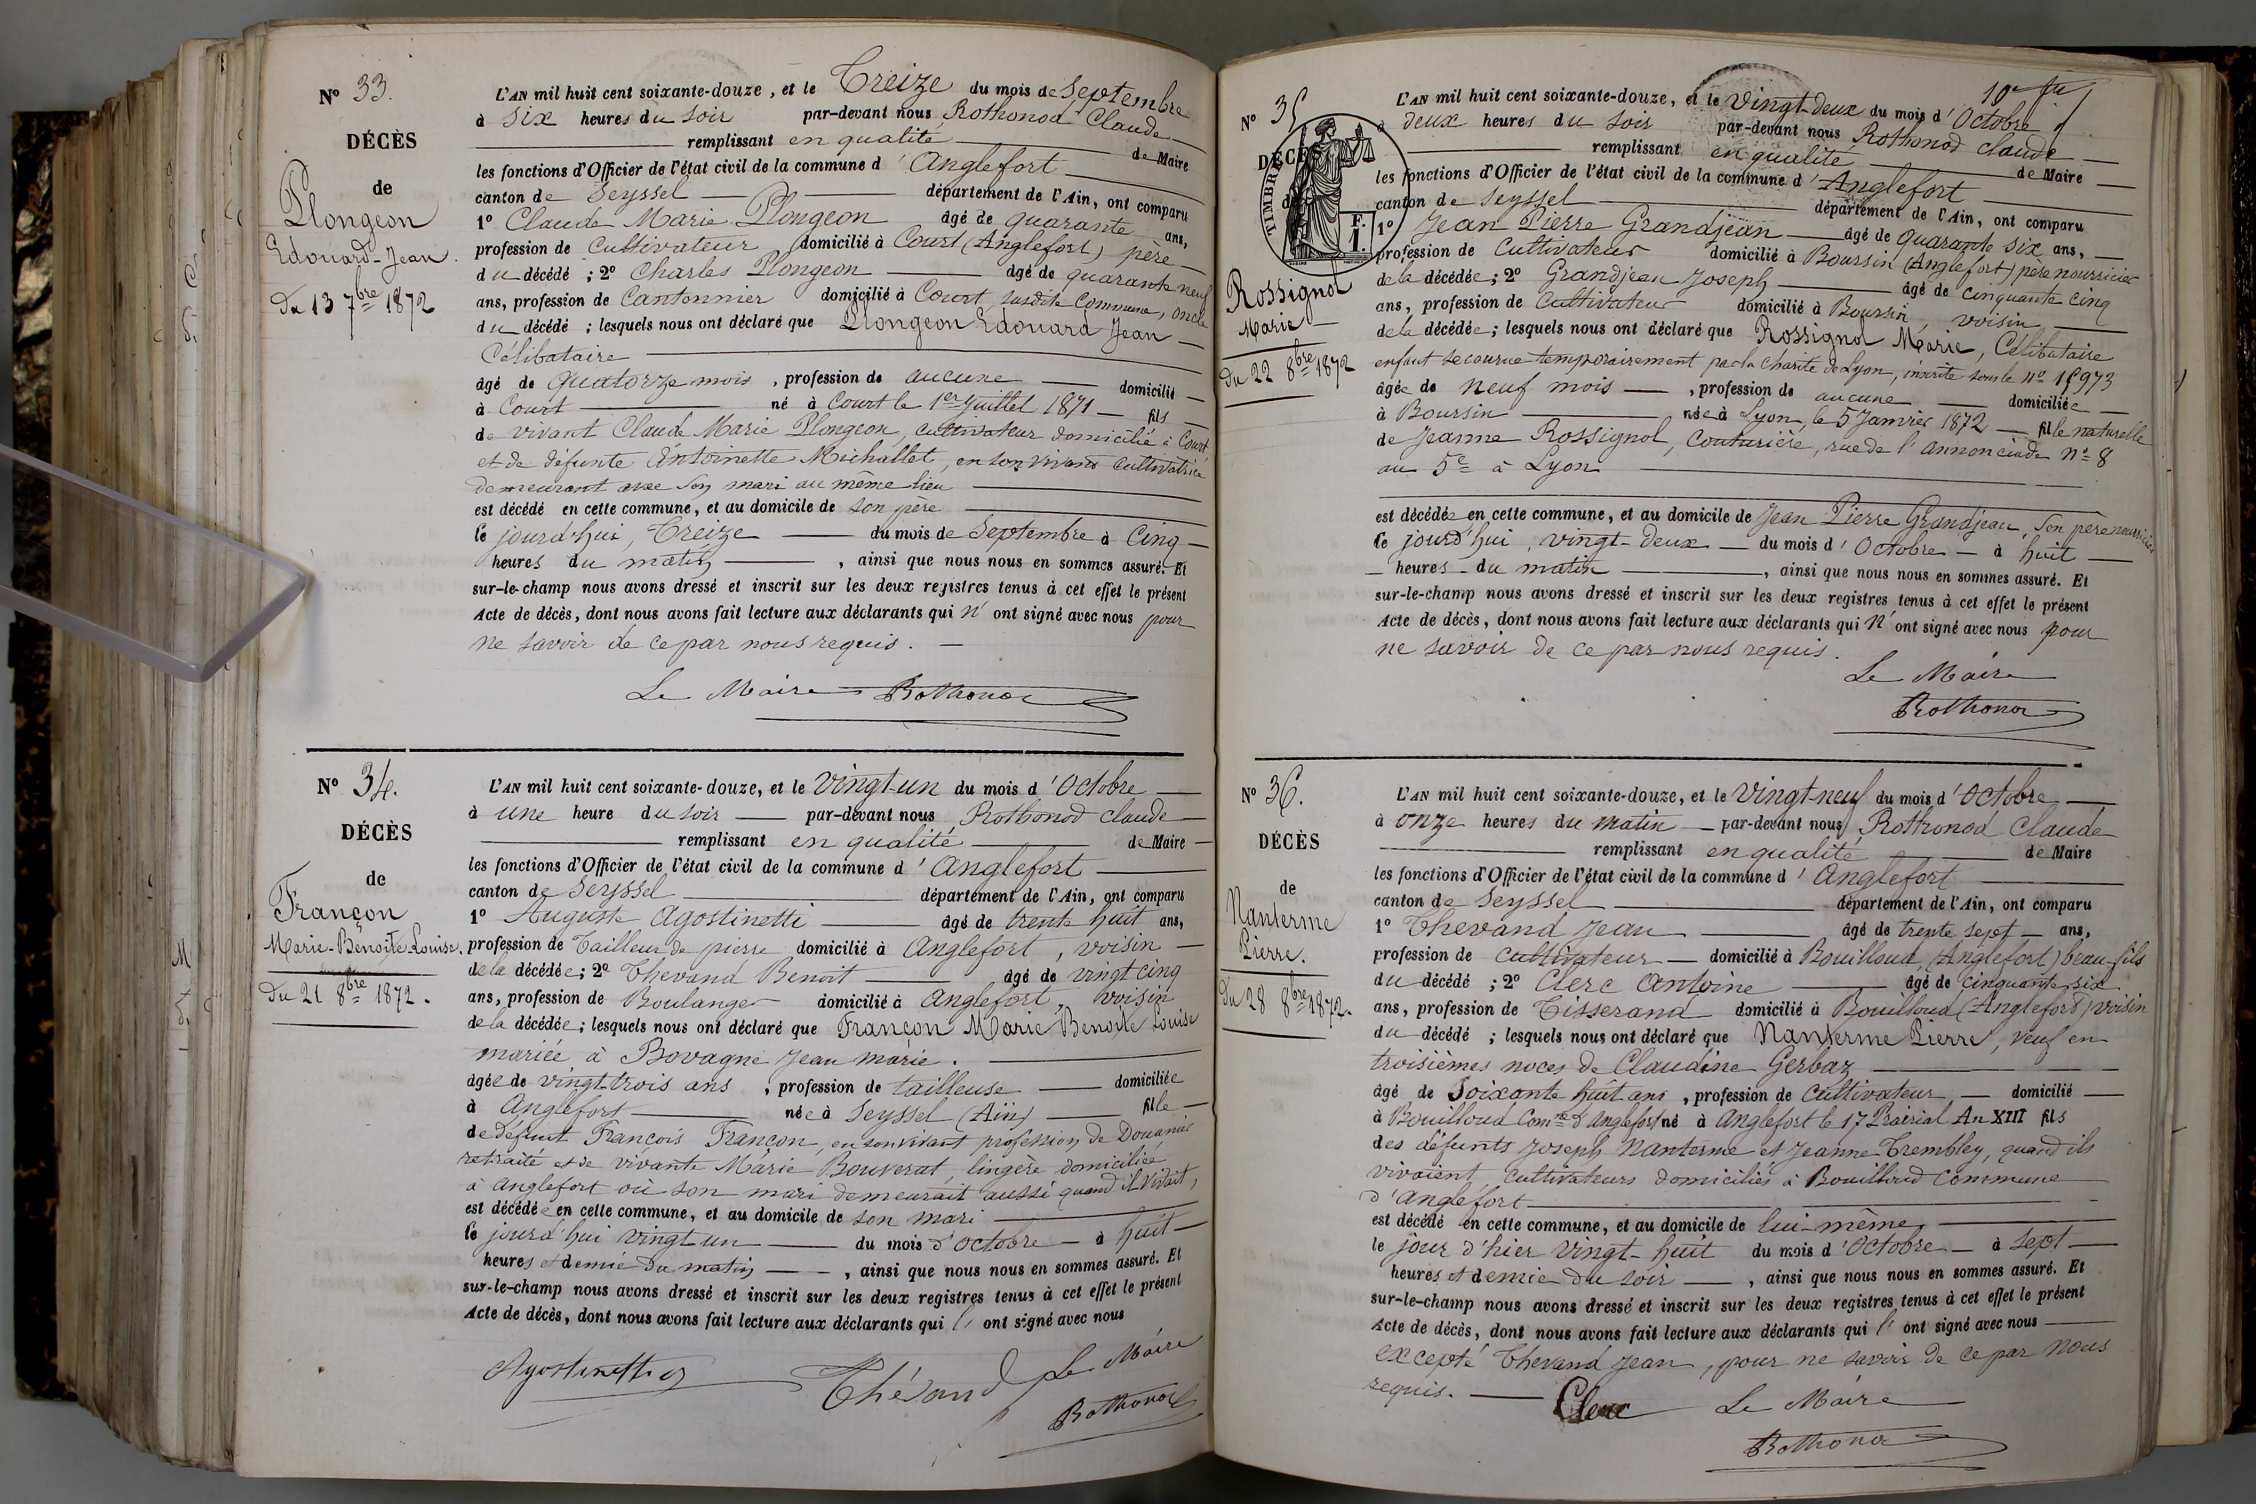 N° 33.
DÉCÈS
de
Plongeon
Edouard-Jean.
Du 13 7bre 1872
L'AN mil huit cent soixante-douze, et le Treize du mois de Septembre
à six heures du soir par-devant nous Rothonod Claude
remplissant en qualité de Maire
les fonctions d'Officier de l'état civil de la commune d'Anglefort
canton de Seyssel département de l'Ain, ont comparu
1° Claude Marie Plongeon âgé de quarante ans,
profession de Cultivateur domicilié à Court (Anglefort) père
du décédé ; 2° Charles Plongeon âgé de quarante neuf
ans, profession de Cantonnier domicilié à Court susdite Commune, oncle
du décédé ; lesquels nous ont déclaré que Plongeon Edouard Jean
Célibataire
âgé de quatorze mois, profession de aucune domicilié
à Court né à Court le 1er Juillet 1871 fils
de vivant Claude Marie Plongeon, cultivateur domicilié à Court,
et de défunte Antoinette Michallet, en son vivant cultivatrice
demeurant avec son mari au même lieu
est décédé en cette commune, et au domicile de son père
le jourd'hui, Treize du mois de Septembre à Cinq
heures du matin, ainsi que nous nous en sommes assuré. Et
sur-le-champ nous avons dressé et inscrit sur les deux registres tenus à cet effet le présent
Acte de décès, dont nous avons fait lecture aux déclarants qui n'ont signé avec nous pour
ne savoir de ce par nous requis.
Le Maire Rothonod
N° 34.
DÉCÈS
de
Françon
Marie-Benoîte-Louise.
Du 21 8bre 1872.
L'AN mil huit cent soixante-douze, et le Vingt-un du mois d'Octobre
à une heure du soir par-devant nous Rothonod Claude
remplissant en qualité de Maire
les fonctions d'Officier de l'état civil de la commune d'Anglefort
canton de Seyssel département de l'Ain, ont comparu
1° Auguste Agostinetti âgé de trente huit ans,
profession de Tailleur de pierre domicilié à Anglefort, voisin
de la décédée ; 2° Thevand Benoit âgé de vingt cinq
ans, profession de Boulanger domicilié à Anglefort, voisin
de la décédée ; lesquels nous ont déclaré que Françon Marie Benoîte Louise
mariée à Bovagne Jean marie.
âgée de vingt-trois ans, profession de tailleuse domiciliée
à Anglefort née à Seyssel (Ain) fille
de défunt François Françon, en son vivant profession de Douanier
retraité et de vivante Marie Bouverat, lingère domiciliée
à Anglefort où son mari demeurait aussi quand il vivait,
est décédée en cette commune, et au domicile de son mari
le jourd'hui vingt un du mois d'octobre à huit
heures et demie du matin, ainsi que nous nous en sommes assuré. Et
sur-le-champ nous avons dressé et inscrit sur les deux registres tenus à cet effet le présent
Acte de décès, dont nous avons fait lecture aux déclarants qui l'ont signé avec nous
Agostinetti Thévand Le Maire
Rothonod
N° 35
DÉCÈS
de
TIMBRE
F.
1.
Rossignol
Marie
Du 22 8bre 1872
L'AN mil huit cent soixante-douze, et le Vingt-deux du mois d'Octobre
à deux heures du soir par-devant nous Rothonod Claude
remplissant en qualité de Maire
les fonctions d'Officier de l'état civil de la commune d'Anglefort
canton de Seyssel département de l'Ain, ont comparu
1° Jean Pierre Grandjean âgé de quarante six ans,
profession de Cultivateur domicilié à Boursin (Anglefort) père nourricier
de la décédée ; 2° Grandjean Joseph âgé de cinquante cinq
ans, profession de Cultivateur domicilié à Boursin, voisin
de la décédée ; lesquels nous ont déclaré que Rossignol Marie, Célibataire
enfant secourue temporairement par la charité de Lyon, inscrite sous le n°
âgée de neuf mois, profession de aucune domiciliée
à Boursin née à Lyon, le 5 Janvier 1872 fille naturelle
de Jeanne Rossignol, Couturière, rue de l'annonciade n° 8
au 5e à Lyon
est décédée en cette commune, et au domicile de Jean Pierre Grandjean, son père nourricier
le jourd'hui, vingt-deux du mois d'Octobre à huit
heures du matin, ainsi que nous nous en sommes assuré. Et
sur-le-champ nous avons dressé et inscrit sur les deux registres tenus à cet effet le présent
Acte de décès, dont nous avons fait lecture aux déclarants qui n'ont signé avec nous pour
ne savoir de ce par nous requis.
Le Maire
Rothonod
N° 36.
DÉCÈS
de
Nanterme
Pierre.
Du 28 8bre 1872.
L'AN mil huit cent soixante-douze, et le Vingt-neuf du mois d'Octobre
à onze heures du matin par-devant nous Rothonod Claude
remplissant en qualité de Maire
les fonctions d'Officier de l'état civil de la commune d'Anglefort
canton de Seyssel département de l'Ain, ont comparu
1° Thevand Jean âgé de trente sept ans,
profession de cultivateur domicilié à Bouilloud (Anglefort) beau-fils
du décédé ; 2° Clerc Antoine âgé de cinquante six
ans, profession de Tisserand domicilié à Bouilloud (Anglefort) voisin
du décédé ; lesquels nous ont déclaré que Nanterme Pierre, veuf en
troisièmes noces de Claudine Gerbaz
âgé de Soixante huit ans, profession de Cultivateur domicilié
à Bouilloud Comne d'Anglefort né à Anglefort le 17 Prairial An XIII fils
des défunts Joseph Nanterme et Jeanne Trembley, quand ils
vivaient cultivateurs domiciliés à Bouilloud Commune
d'Anglefort
est décédé en cette commune, et au domicile de lui-même
le jour d'hier vingt-huit du mois d'Octobre à sept
heures et demie du soir, ainsi que nous nous en sommes assuré. Et
sur-le-champ nous avons dressé et inscrit sur les deux registres tenus à cet effet le présent
Acte de décès, dont nous avons fait lecture aux déclarants qui l'ont signé avec nous
excepté Thevand Jean, pour ne savoir de ce par nous
requis. Clerc Le Maire
Rothonod